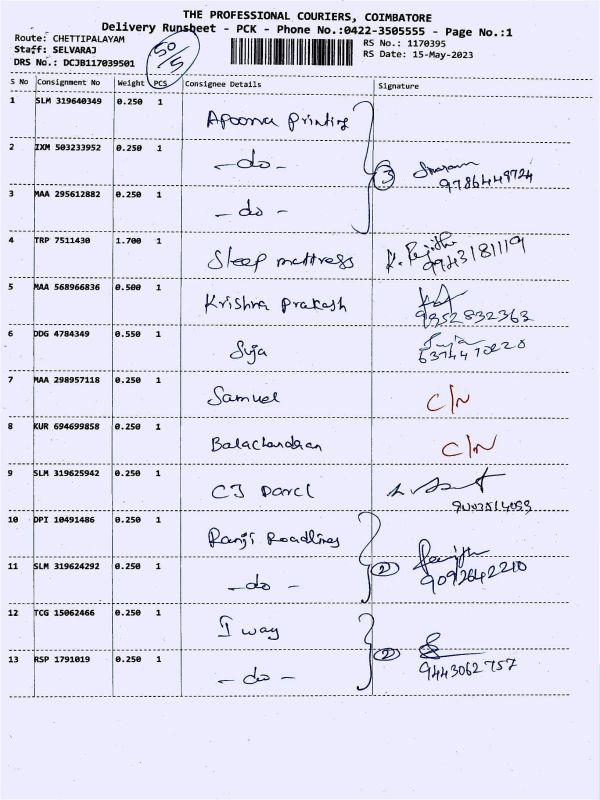 THE PROFESSIONAL COURIERS, COIMBATORE
Delivery Runsheet - PCK - Phone No.:0422-3505555 - Page No.:1
Route: CHETTIPALAYAM
Staff: SELVARAJ
DRS No.: DCJB117039501
50/5
RS No.: 1170395
RS Date: 15-May-2023
S No Consignment No Weight PCS Consignee Details Signature
1 SLM 319640349 0.250 1 Apoorva Printing
2 IXM 503233952 0.250 1 -do- 3
9786449724
3 MAA 295612882 0.250 1 -do-
4 TRP 7511430 1.700 1 Sleep mattress K. Rejith
9943181119
5 MAA 568966836 0.500 1 Krishna Prakash
9352832363
6 DDG 4784349 0.550 1 Suja Suja
7 MAA 298957118 0.250 1 Samuel C/N
8 KUR 694699858 0.250 1 Balachandran C/N
9 SLM 319625942 0.250 1 CJ Darcl
10 DPI 10491486 0.250 1 Ranji Roadlines
11 SLM 319624292 0.250 1 -do- 2 Ranjith
9092642210
12 TCG 15062466 0.250 1 I way
13 RSP 1791019 0.250 1 -do- 2
9443062757